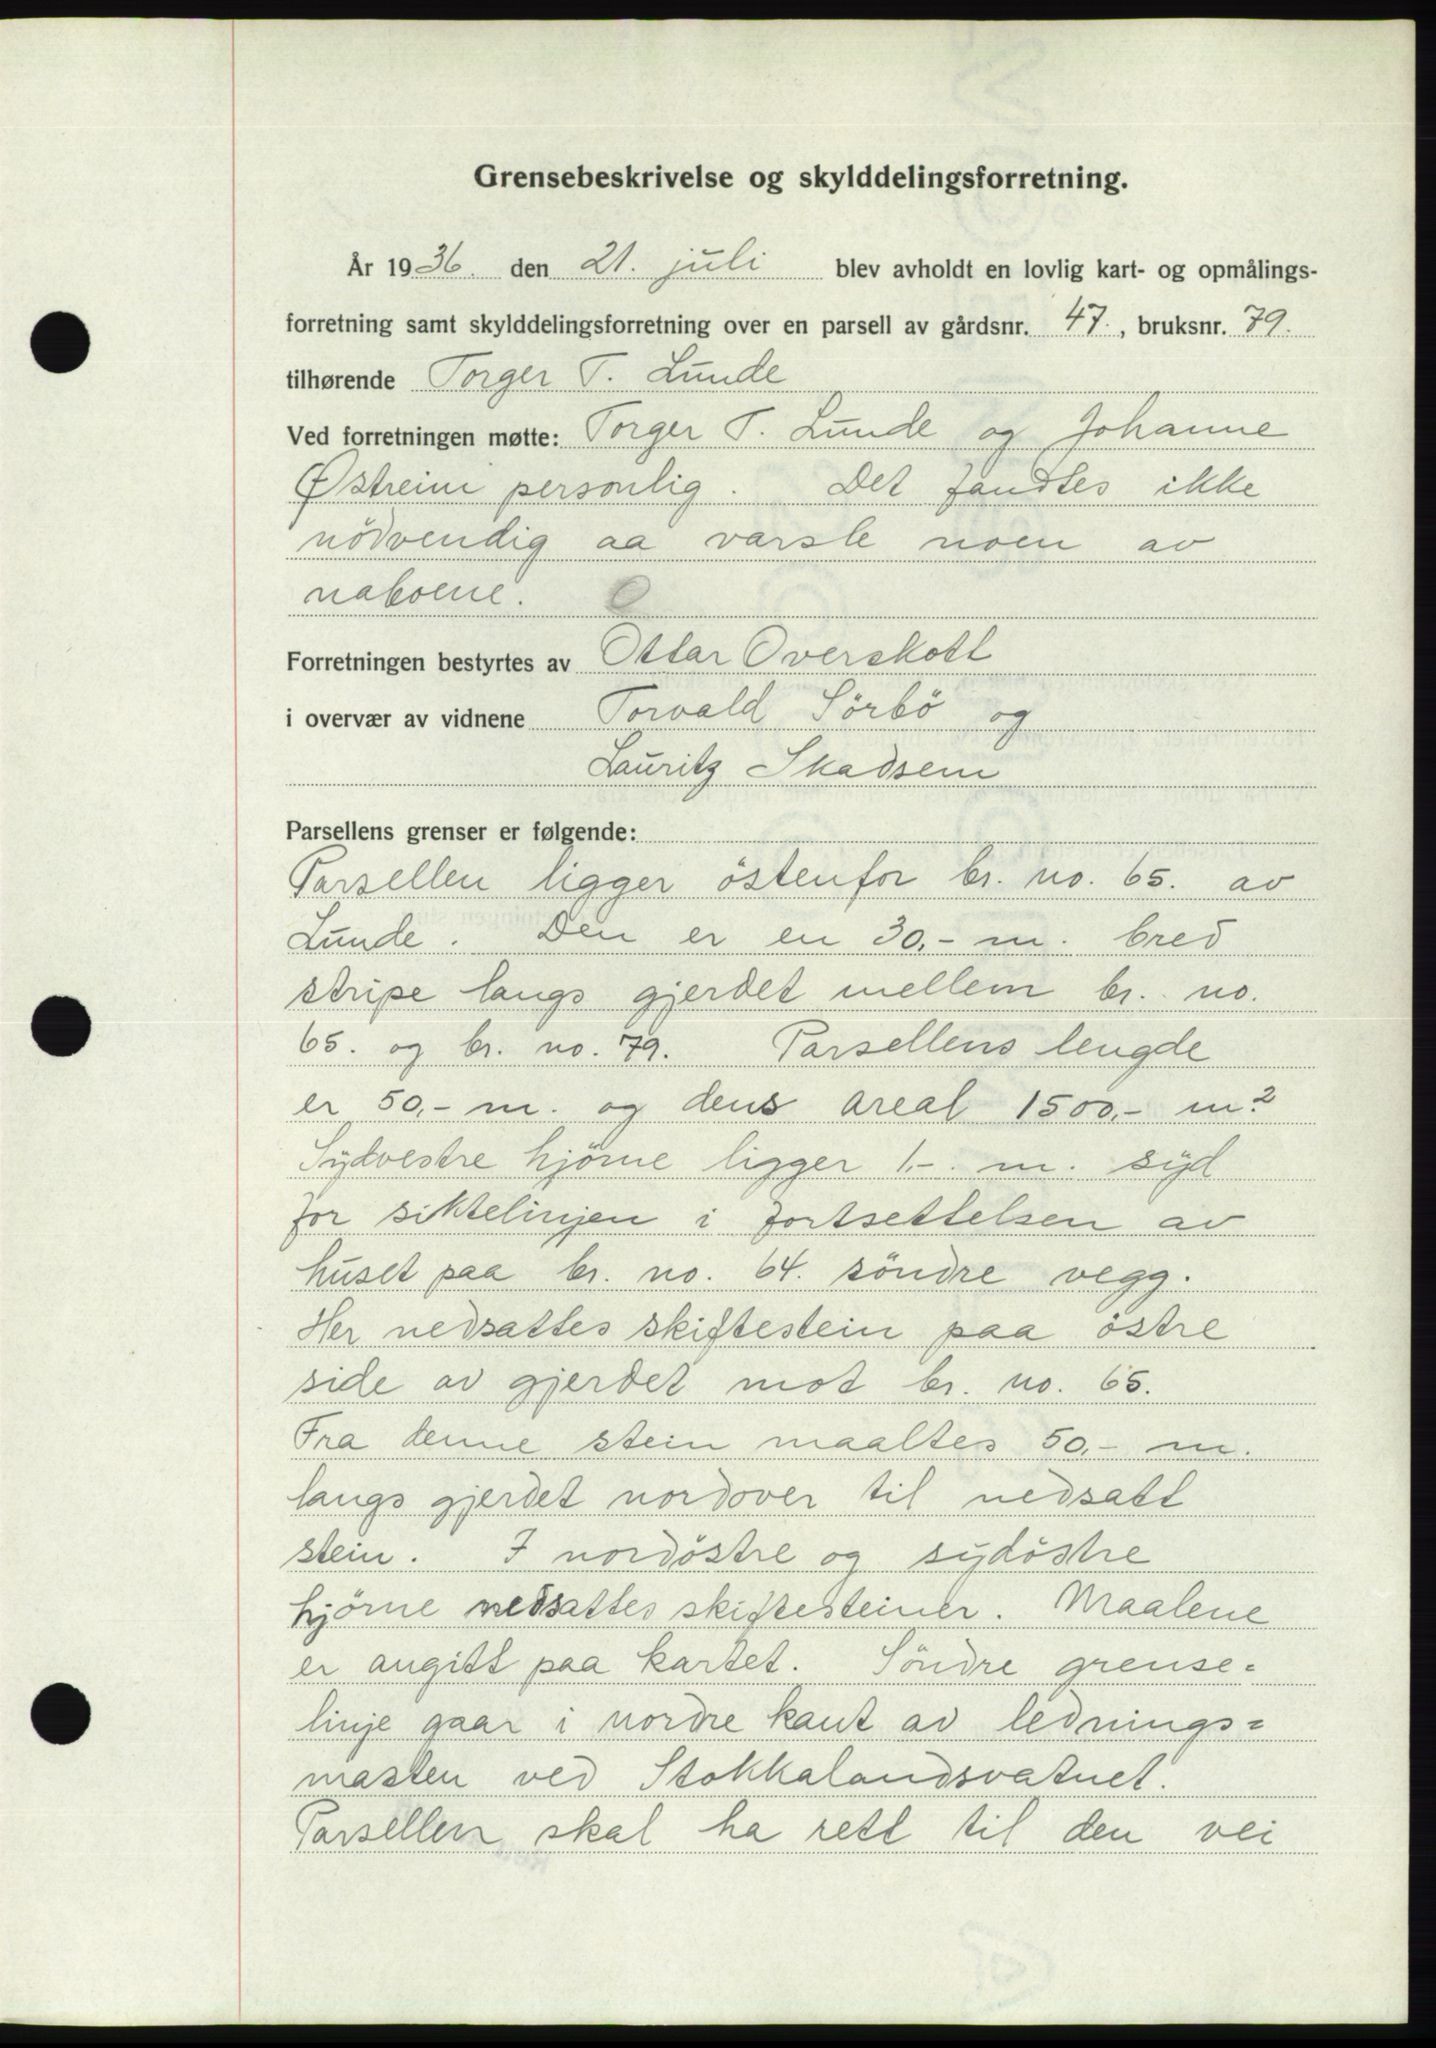 Grensebeskrivelse og skylddelingsforretning.
År 1936. den 21. juli blev avholdt en lovlig kart- og opmålings-
forretning samt skylddelingsforretning over en parsell av gårdsnr. 47., bruksnr. 79.
tilhørende Torger T. Lunde
Ved forretningen møtte: Torger T. Lunde og Johanne
Østreim personlig. Det fandtes ikke
nödvendig aa varsle noen av
naboene.
Forretningen bestyrtes av Ottar Overskott
i overvær av vidnene Torvald Sörbö og
Lauritz Skadsem
Parsellens grenser er følgende:
Parsellen ligger östenfor br. no. 65. av
Lunde. Den er en 30,- m. bred
stripe langs gjerdet mellem br. no.
65. og br. no. 79. Parsellens lengde
er 50,- m. og dens areal 1500,- m.²
Sydvestre hjörne ligger 1,-. m. syd
for siktelinjen i fortsettelsen av
huset paa br. no. 64. söndre vegg.
Her nedsattes skiftestein paa östre
side av gjerdet mot br. no. 65.
Fra denne stein maaltes 50,- m.
langs gjerdet nordover til nedsatt
stein. I nordöstre og sydöstre
hjörne nedsattes skiftesteiner. Maalene
er angitt paa kartet. Söndre grense=
linje gaar i nordre kant av lednings=
masten ved Stokkalandsvatnet.
Parsellen skal ha rett til den vei